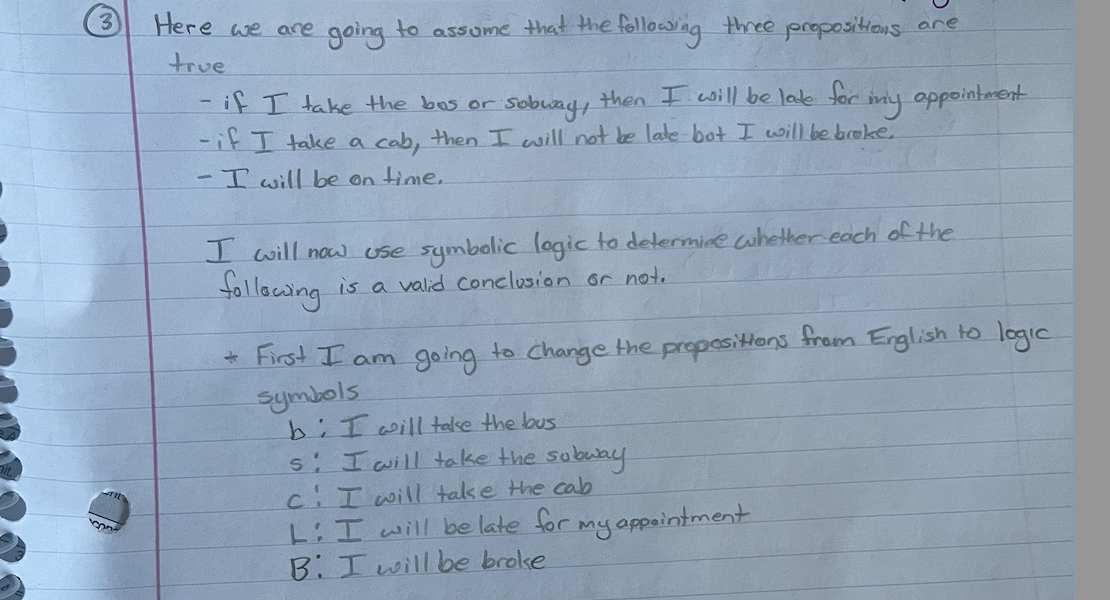 ③ Here we are going to assume that the following three propositions are
true
- if I take the bus or subway, then I will be late for my appointment
- if I take a cab, then I will not be late but I will be broke.
- I will be on time.
I will now use symbolic logic to determine whether each of the
following is a valid conclusion or not.
* First I am going to change the propositions from English to logic
symbols
b: I will take the bus
s: I will take the subway
c: I will take the cab
L: I will be late for my appointment
B: I will be broke